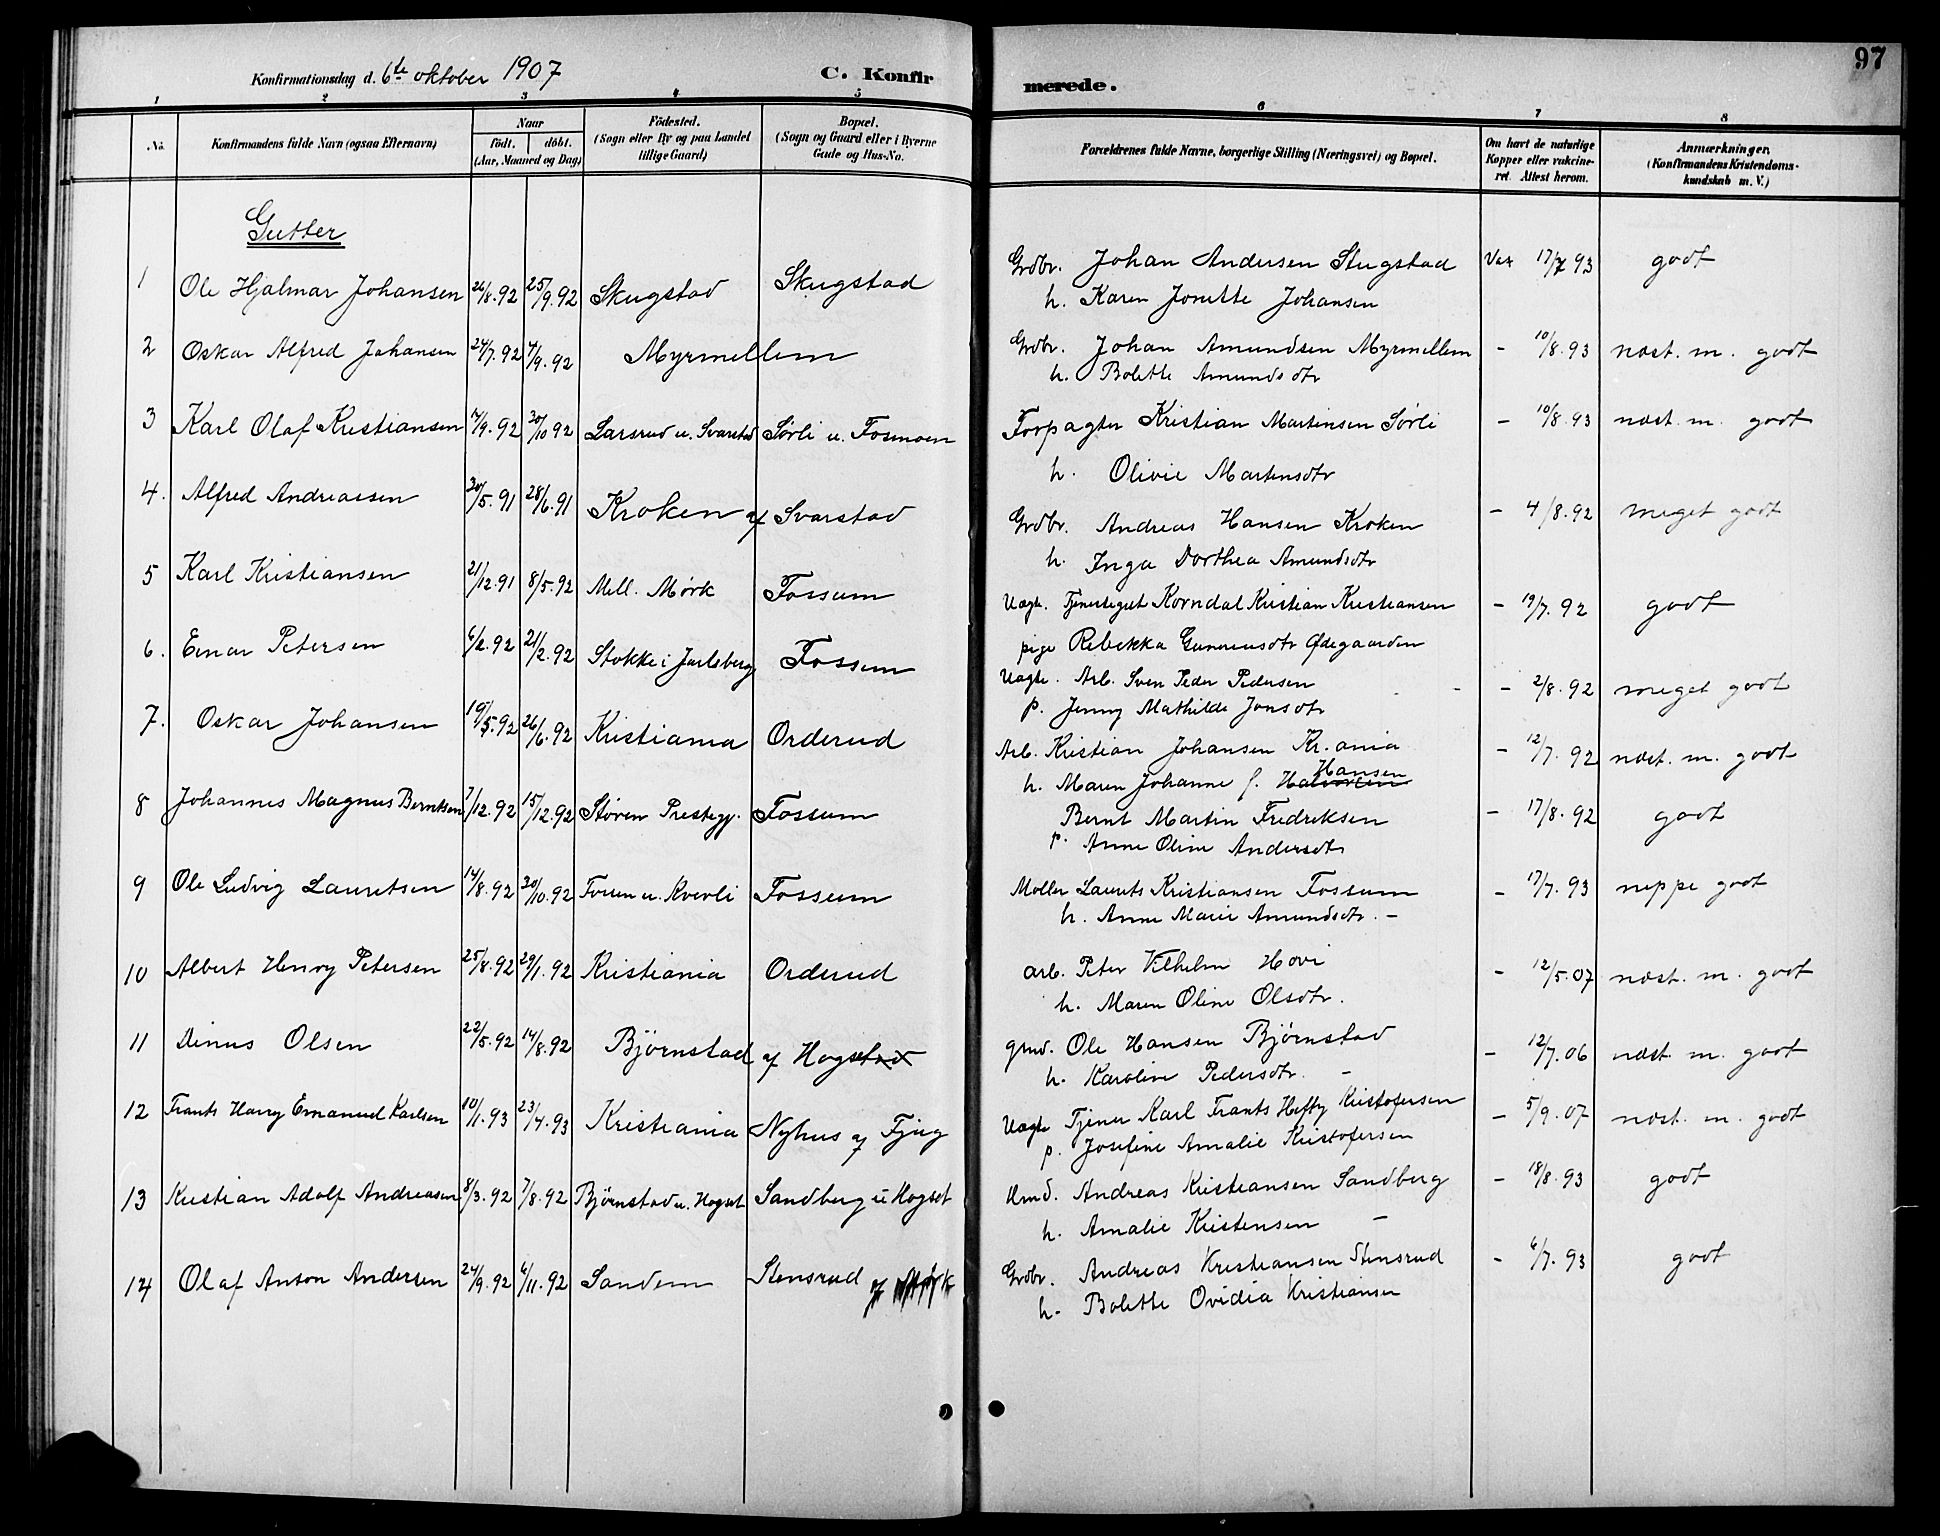 97
Konfirmationsdag d. 6te oktober 1907 C. Konfirmerede.
1 2 3 4 5 6 7 8
No. Konfirmandens fulde Navn (ogsaa Efternavn) Naar født. døbt. (Aar, Maaned og Dag) Fødested. (Sogn eller By og paa Landet tillige Gaard) Bopæl. (Sogn og Gaard eller i Byerne Gade og Hus-No. Forældrenes fulde Navne, borgerlige Stilling (Næringsvei) og Bopæl. Om havt de naturlige Kopper eller vakcineret. Attest herom. Anmærkninger. (Konfirmandens Kristendomskundskab m. V.)
Gutter
1 Ole Hjalmar Johansen 26/8.92 25/9.92 Skugstad Skugstad Grdbr. Johan Andersen Skugstad Vax 17/7 93 godt
h. Karen Jonette Johansen
2 Oskar Alfred Johansen 24/7.92 4/9.92 Myrmellem Grdbr. Johan Amundsen Myrmellem - 10/8.93 næst. m. godt
h. Bolette Amundsdtr
3 Karl Olaf Kristiansen 17/9.92 30/10 92 Larsrud u. Svarstad Sørli u. Fosmoen Forpagter Kristian Martinsen Sørli - 10/8.93 næst. m. godt
h. Olivie Martensdtr
4. Alfred Andreassen 30/5.91 28/6.91 Kroken af Svarstad Grdbr. Andreas Hansen Kroken - 4/8.92 meget godt
h. Inga Dorthea Amundsdtr
5 Karl Kristiansen 21/12.91 8/5.92 Mell. Mørk Fossum Uægte. Tjenestegut Korndal Kristian Kristiansen - 19/7.92 godt
pige Rebekka Gunnersdtr Ødegaarden
6. Einar Petersen 6/2.92 21/2.92 Stokke i Jarlsberg Fossum Uægte. Arb. Sven Peder Pedersen - 2/8.92 meget godt
p. Jenny Mathilde Jonsdtr
7. Oskar Johansen 19/5.92 26/6.92 Kristiania Orderud Arb. Kristian Johansen Kr.ania - 12/7.92 næst. m. godt
h. Maren Johanne f. Halvorsen Hansen
8 Johannes Magnus Berntsen 7/12.92 15/12.92 Støren Prestegj. Fossum Bernt Martin Fredriksen - 17/8.92 godt
p. Anne Oline Andersdtr
9 Ole Ludvig Lauretsen 14/8.92 30/10.92 Foren u. Kverli Fossum Møller Laurits Kristiansen Fossum - 17/7.93 neppe godt
h. Anne Marie Amundsdtr. -
10 Albert Henry Petersen 25/8.92 29/1.92 Kristiania Orderud arb. Peter Vilhelm Hovi - 12/5.07 næst. m. godt
h. Maren Oline Olsdtr.
11 Dinus Olsen 22/5.92 14/8.92 Bjørnstad af Hogstad grmd. Ole Hansen Bjørnstad - 12/7.06 næst. m. godt
h. Karoline Pedersdtr. -
12 Frants Harry Emanuel Karlsen 10/1.93 23/4.93 Kristiania Nyhus af Fjug Uægte Tjener Karl Frants Hefty Kristofersen - 5/9.07 næst. m. godt
p. Josefine Amalie Kristofersen
13 Kristian Adolf Andreasen 8/3.92 7/8.92 Bjørnstad u. Hogset Sandberg u Hogset Hmd. Andreas Kristiansen Sandberg - 18/8.93 godt
h. Amalie Kristensen -
14 Olaf Anton Andersen 24/9.92 6/11.92 Sandem Stensrud af Mørk Grdbr. Andreas Kristiansen Stensrud - 6/7.93 godt
h. Bolette Ovidia Kristiansen